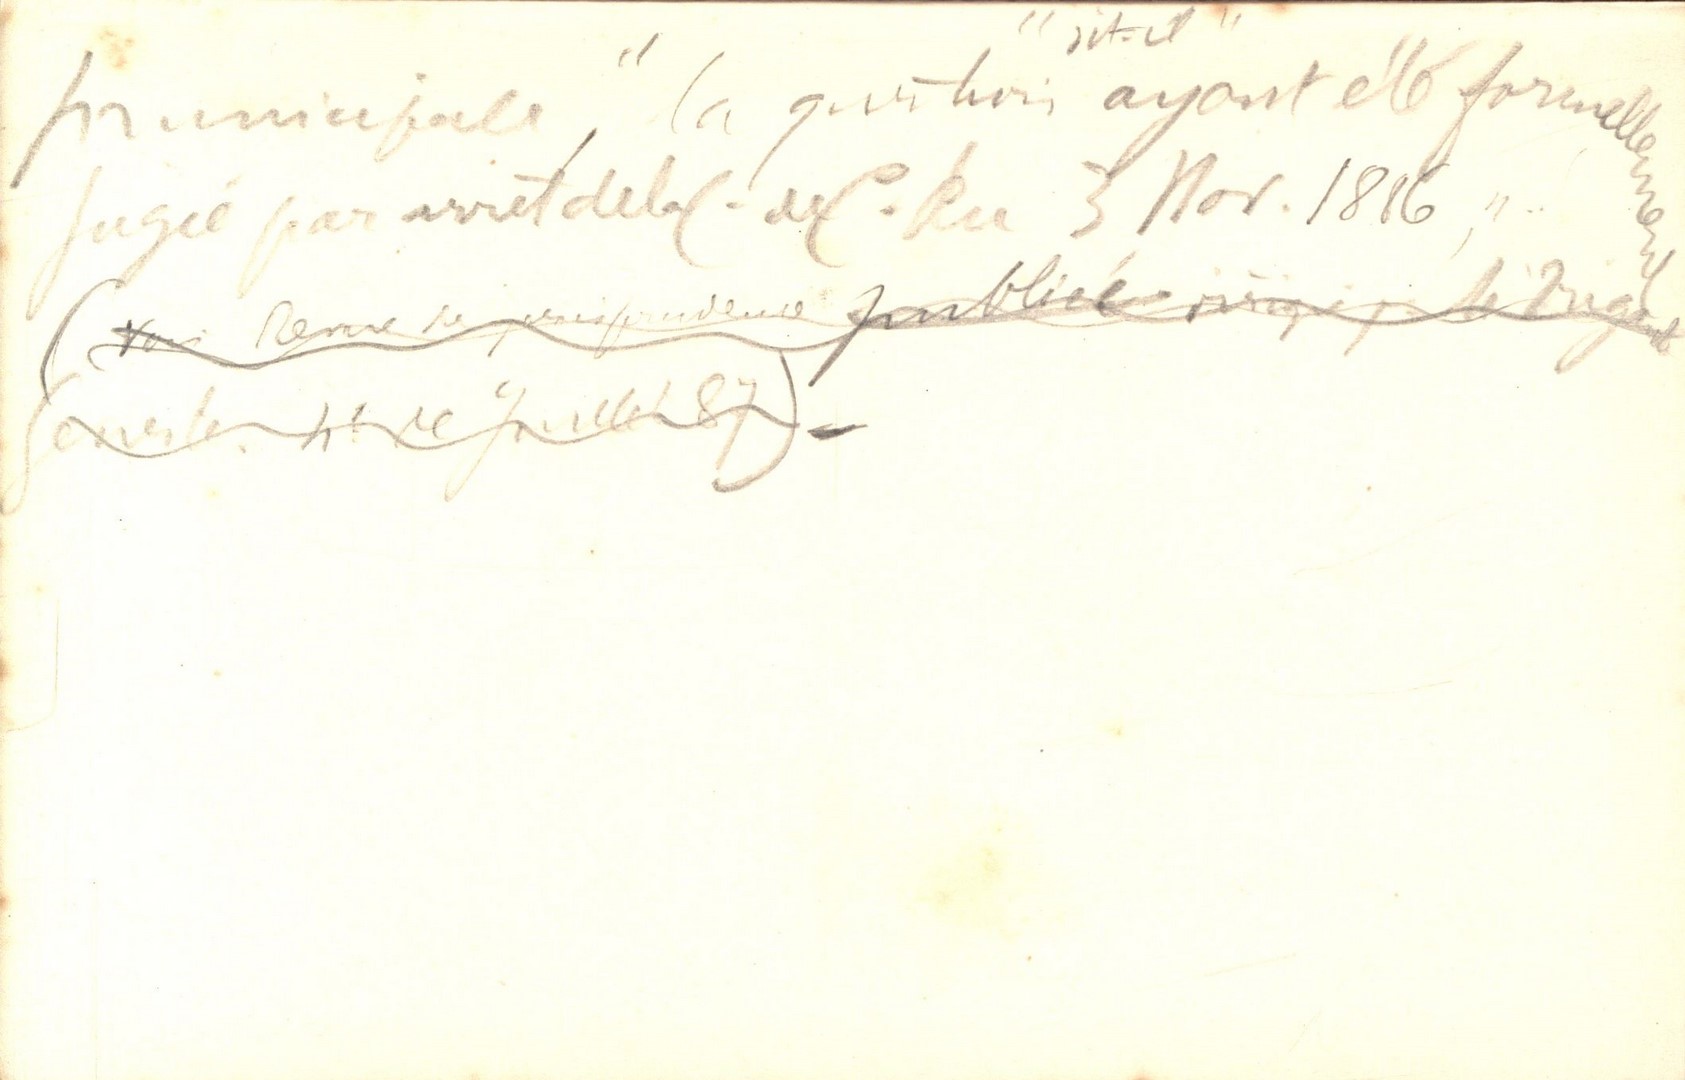 " dit-il "
municipale " la question ayant été formellement
jugée par arrêt de la C. de C. du 3 Nov. 1886, "
(Voir Revue de jurisprudence publiée
de Juillet 87) -